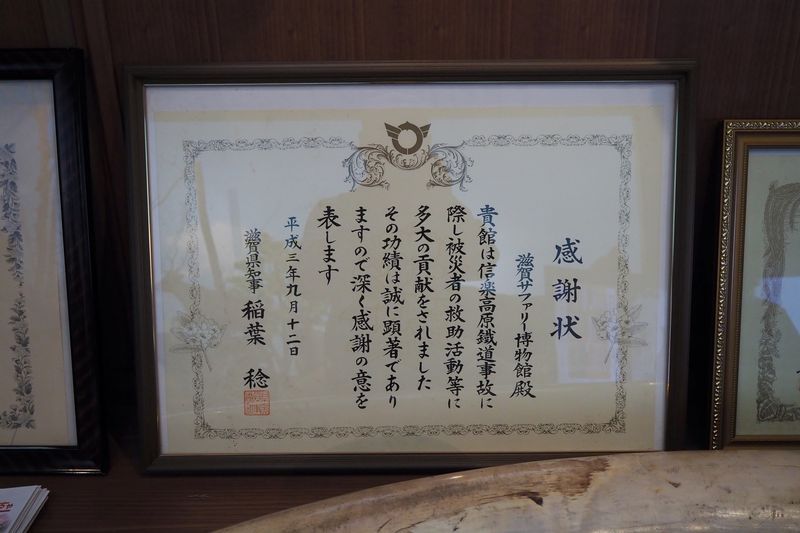 感謝状
滋賀サファリー博物館殿
貴館は信楽高原鐵道事故に
際し被災者の救助活動等に
多大の貢献をされました
その功績は誠に顕著であり
ますので深く感謝の意を
表します
平成三年九月十二日
滋賀県知事 稲葉 稔